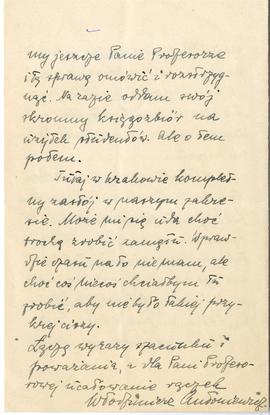 my jeszcze Panie Profesorze
i tę sprawę omówić i rozstrzyg-
nąć. Na razie oddam swój
skromny księgozbiór na
użytek studentów. Ale o tem
potem.
Tutaj w Krakowie komplet-
ny zastój w naszym zakre-
sie. Może mi się uda choć
trochę zrobić zamętu. Wpraw-
dzie czasu na to nie mam, ale
choć coś niecoś chciałbym tu
zrobić, aby nie było takiej przy-
krej ciszy.
Łączę wyrazy szacunku i
poważania, a dla Pani Profeso-
rowej ucałowanie rączek
Włodzimierz Antoniewicz